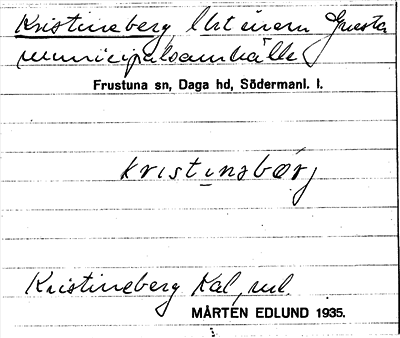 Kristineberg, lht inom Gnesta
municipalsamhälle
Frustuna sn, Daga hd, Södermanl. l.
kristinsbärj
Kristineberg Kal, ml.
MÅRTEN EDLUND 1935.